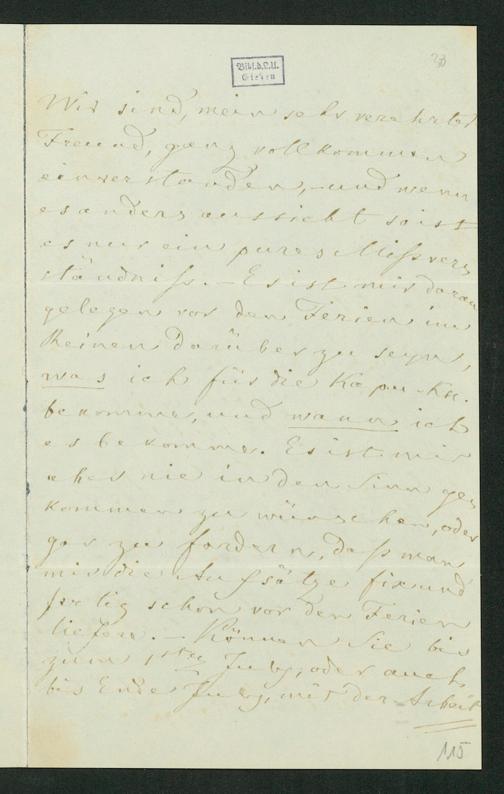 Bibl.d.L.U.
Gießen
Wir sind, mein sehr verehrter
Freund, ganz vollkommen
einverstanden, und wenn
es anders aussieht so ist
es nur ein pures Missver-
ständniß. – Es ist mir daran
gelegen vor den Ferien im
Reinen darüber zu seyn,
was ich für die
bekomme, und wann ich
es bekomme. Es ist mir
aber nie in den Sinn ge-
kommen zu wünschen, oder
gar zu fordern, daß man
mir die Aufsätze fix und
fertig schon vor den Ferien
liefere. – Können Sie bis
zum 1sten July, oder auch
bis Ende July, mit der Arbeit
115